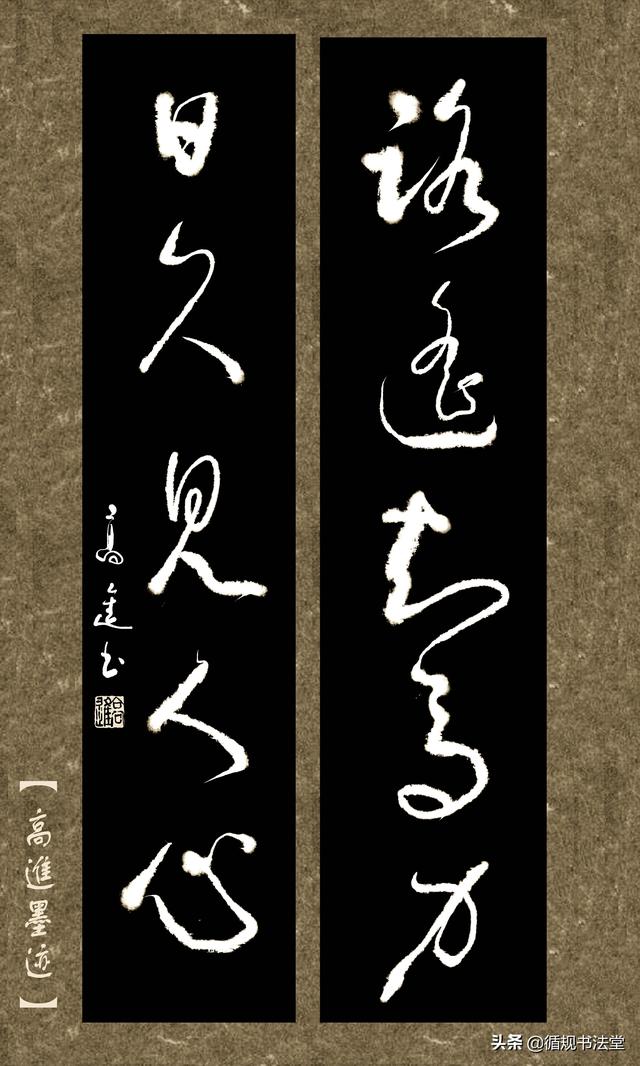 路遥知马力
日久见人心
高进书
高進
【高進墨迹】
头条 @循规书法堂